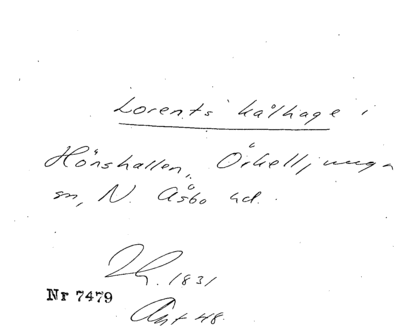 Lorents' kålhage i
Hönshallen, Örkelljunga
sn, N. Åsbo hd.
1831
Nr 7479
Ant 48.